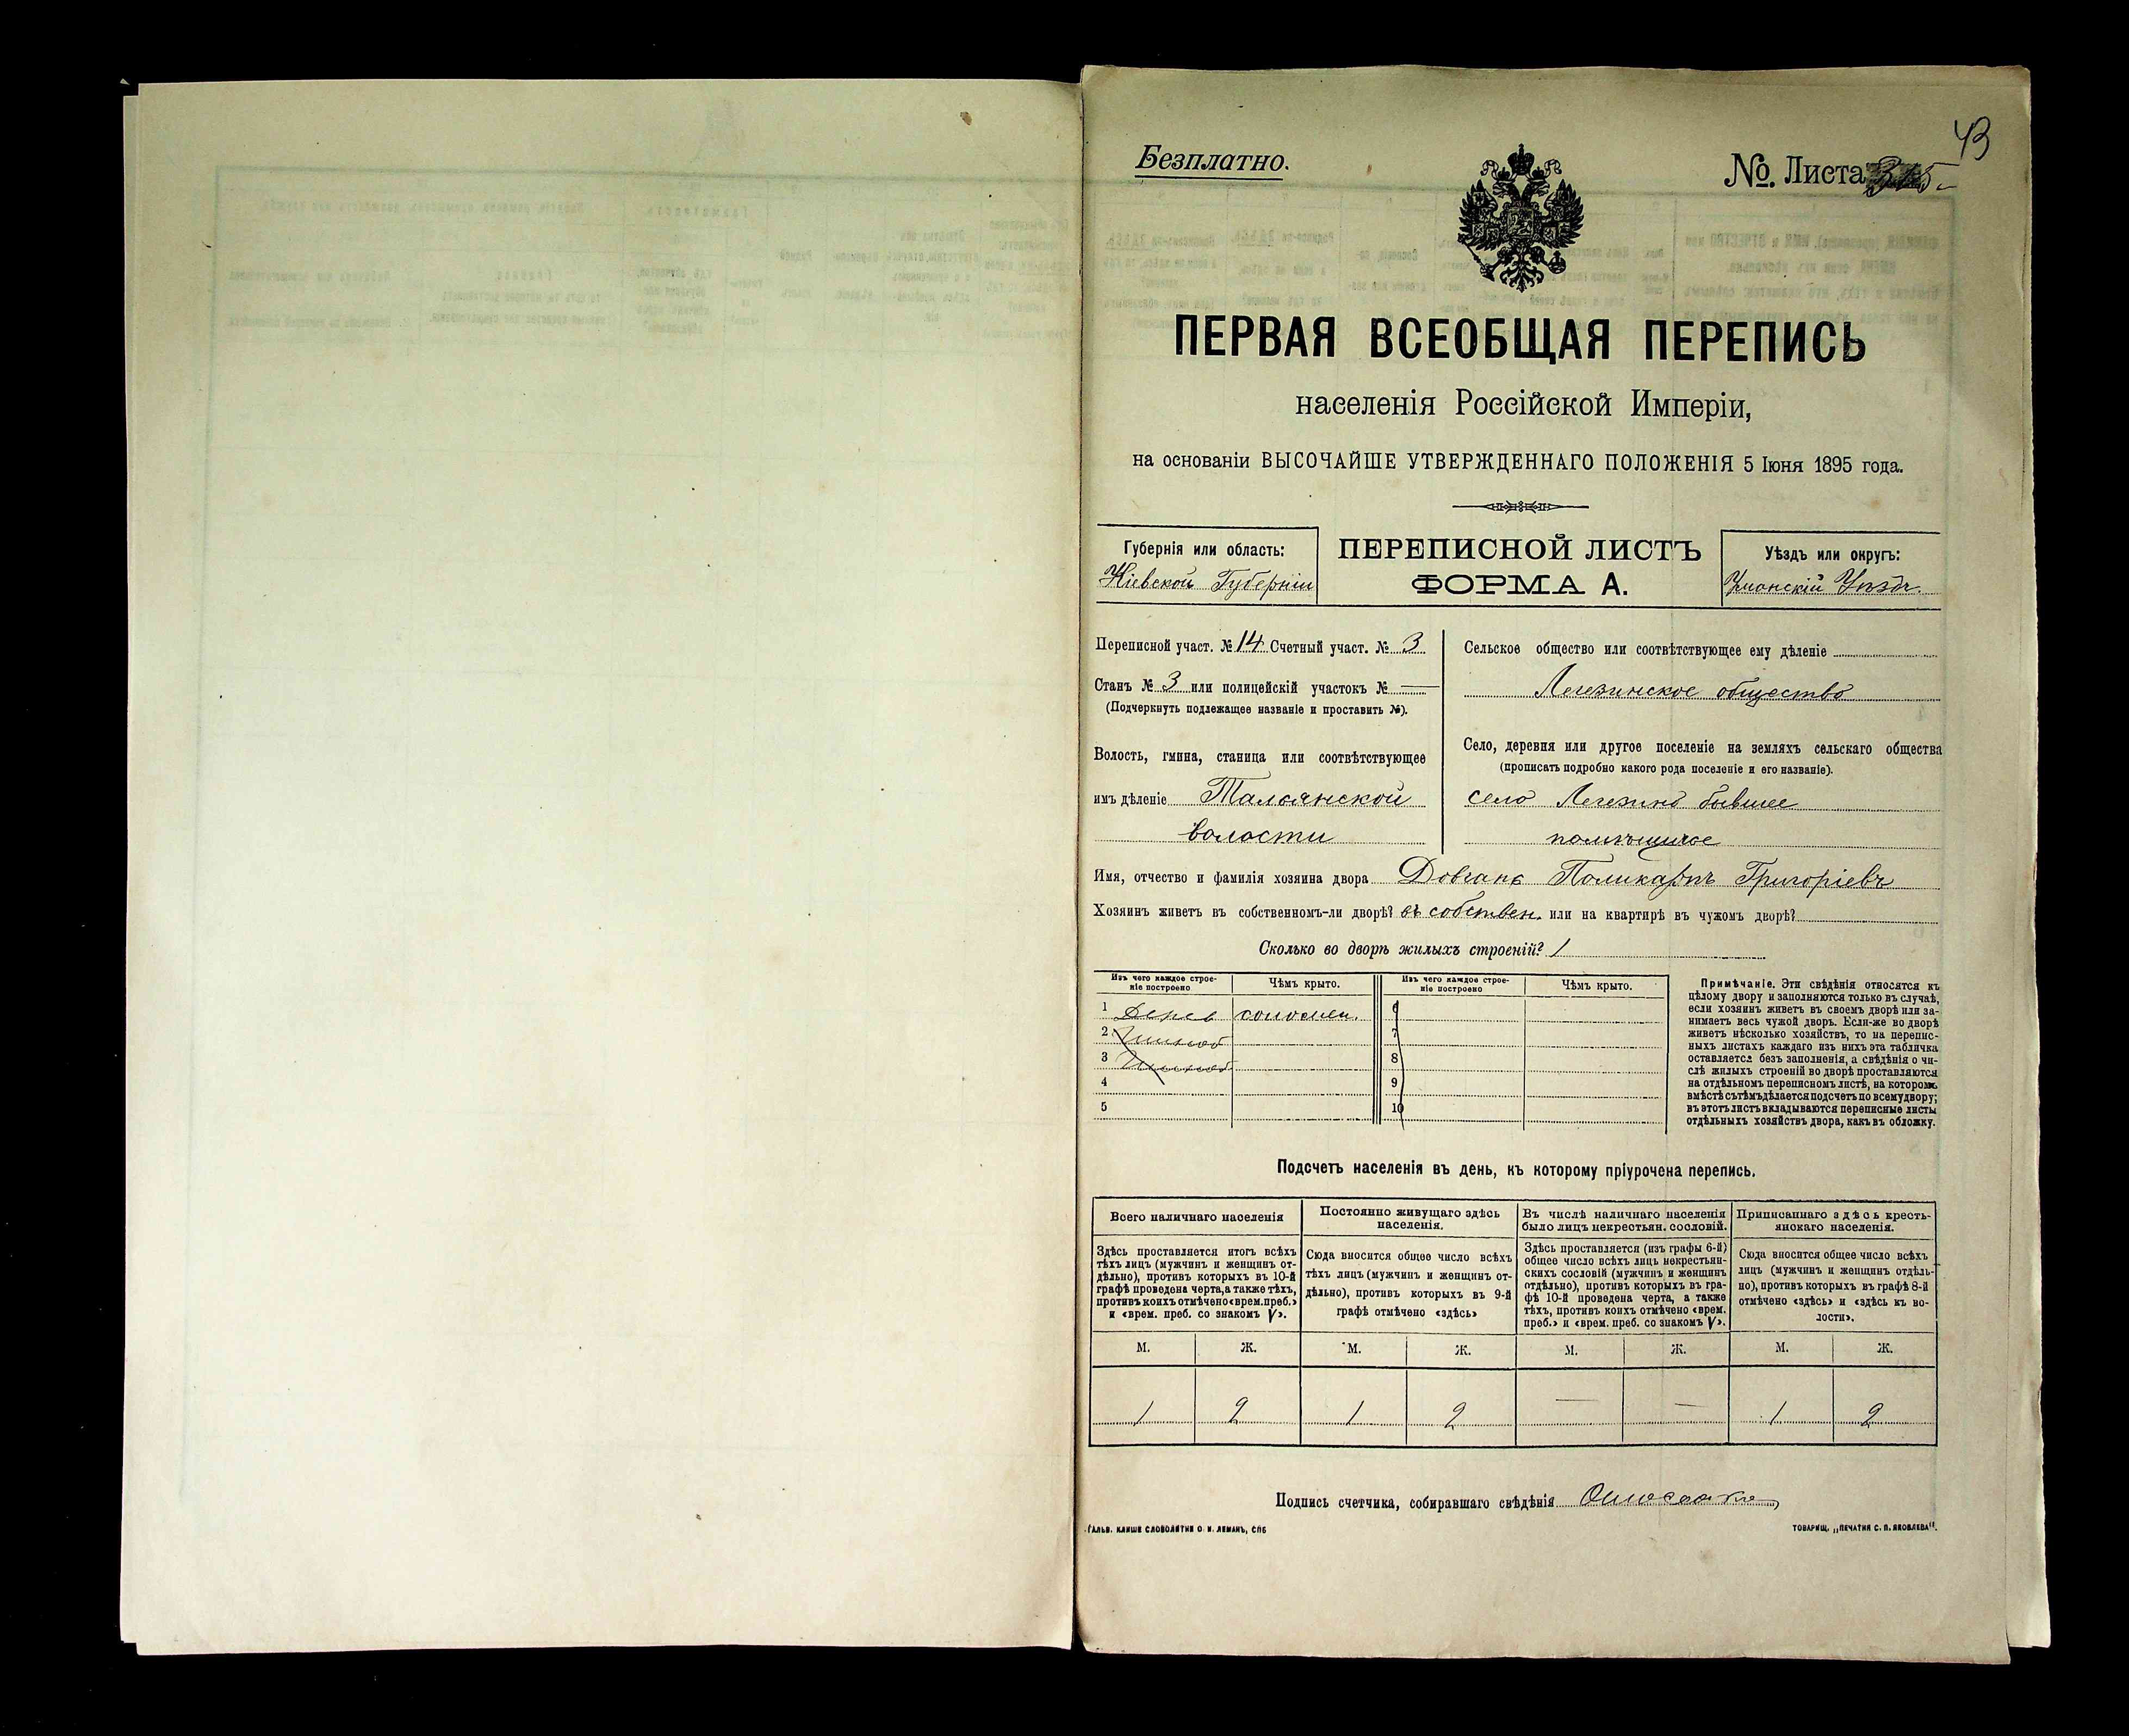 43
Безплатно.
№. Листа
ПЕРВАЯ ВСЕОБЩАЯ ПЕРЕПИСЬ
населенія Россійской Имперіи,
на основаніи ВЫСОЧАЙШЕ УТВЕРЖДЕННАГО ПОЛОЖЕНІЯ 5 Іюня 1895 года.
Губернія или область:
Кіевской Губерніи
ПЕРЕПИСНОЙ ЛИСТЪ
ФОРМА А.
Уѣздъ или округъ:
Уманскій Уѣздъ.
Переписной участ. № 14 Счетный участ. № 3
Станъ № 3 или полицейскій участокъ № —
(Подчеркнуть подлежащее названіе и проставить №).
Волость, гмина, станица или соотвѣтствующее
имъ дѣленіе Тальянской
волости
Сельское общество или соотвѣтствующее ему дѣленіе
Легезинское общество
Село, деревня или другое поселеніе на земляхъ сельскаго общества
(прописать подробно какого рода поселеніе и его названіе).
село Легезино бывшее
помѣщичье
Имя, отчество и фамилія хозяина двора Довгань Поликарпъ Григоріевъ
Хозяинъ живетъ въ собственномъ-ли дворѣ? въ собствен. или на квартирѣ въ чужомъ дворѣ?
Сколько во дворѣ жилыхъ строеній? 1
Изъ чего каждое строе-
ніе построено
Чѣмъ крыто.
Изъ чего каждое строе-
ніе построено
Чѣмъ крыто.
1 Дерев соломен. 6
2 7
3 8
4 9
5 10
Примѣчаніе. Эти свѣдѣнія относятся къ
цѣлому двору и заполняются только въ случаѣ,
если хозяинъ живетъ въ своемъ дворѣ или за-
нимаетъ весь чужой дворъ. Если-же во дворѣ
живетъ нѣсколько хозяйствъ, то на перепис-
ныхъ листахъ каждаго изъ нихъ эта табличка
оставляется безъ заполненія, а свѣдѣнія о чи-
слѣ жилыхъ строеній во дворѣ проставляются
на отдѣльномъ переписномъ листѣ, на которомъ
вмѣстѣ съ тѣмъ дѣлается подсчетъ по всему двору;
въ этотъ листъ вкладываются переписные листы
отдѣльныхъ хозяйствъ двора, какъ въ обложку.
Подсчетъ населенія въ день, къ которому пріурочена перепись.
Всего наличнаго населенія
Здѣсь проставляется итогъ всѣхъ
тѣхъ лицъ (мужчинъ и женщинъ от-
дѣльно), противъ которыхъ въ 10-й
графѣ проведена черта, а также тѣхъ,
противъ коихъ отмѣчено «врем. преб.»
и «врем. преб. со знакомъ V».
Постоянно живущаго здѣсь
населенія.
Сюда вносится общее число всѣхъ
тѣхъ лицъ (мужчинъ и женщинъ от-
дѣльно), противъ которыхъ въ 9-й
графѣ отмѣчено «здѣсь»
Въ числѣ наличнаго населенія
было лицъ некрестьян. сословій.
Здѣсь проставляется (изъ графы 6-й)
общее число всѣхъ лицъ некрестьян-
скихъ сословій (мужчинъ и женщинъ
отдѣльно), противъ которыхъ въ гра-
фѣ 10-й проведена черта, а также
тѣхъ, противъ коихъ отмѣчено «врем.
преб.» и «врем. преб. со знакомъ V».
Приписаннаго здѣсь кресть-
янскаго населенія.
Сюда вносится общее число всѣхъ
лицъ (мужчинъ и женщинъ отдѣль-
но), противъ которыхъ въ графѣ 8-й
отмѣчено «здѣсь» и «здѣсь къ во-
лости».
М. Ж. М. Ж. М. Ж. М. Ж.
1 2 1 2 — — 1 2
Подпись счетчика, собиравшаго свѣдѣнія
ГАЛЬВ. КЛИШЕ СЛОВОЛИТНИ О. И. ЛЕМАНЪ, СПБ
ТОВАРИЩ. „ПЕЧАТНЯ С. П. ЯКОВЛЕВА".